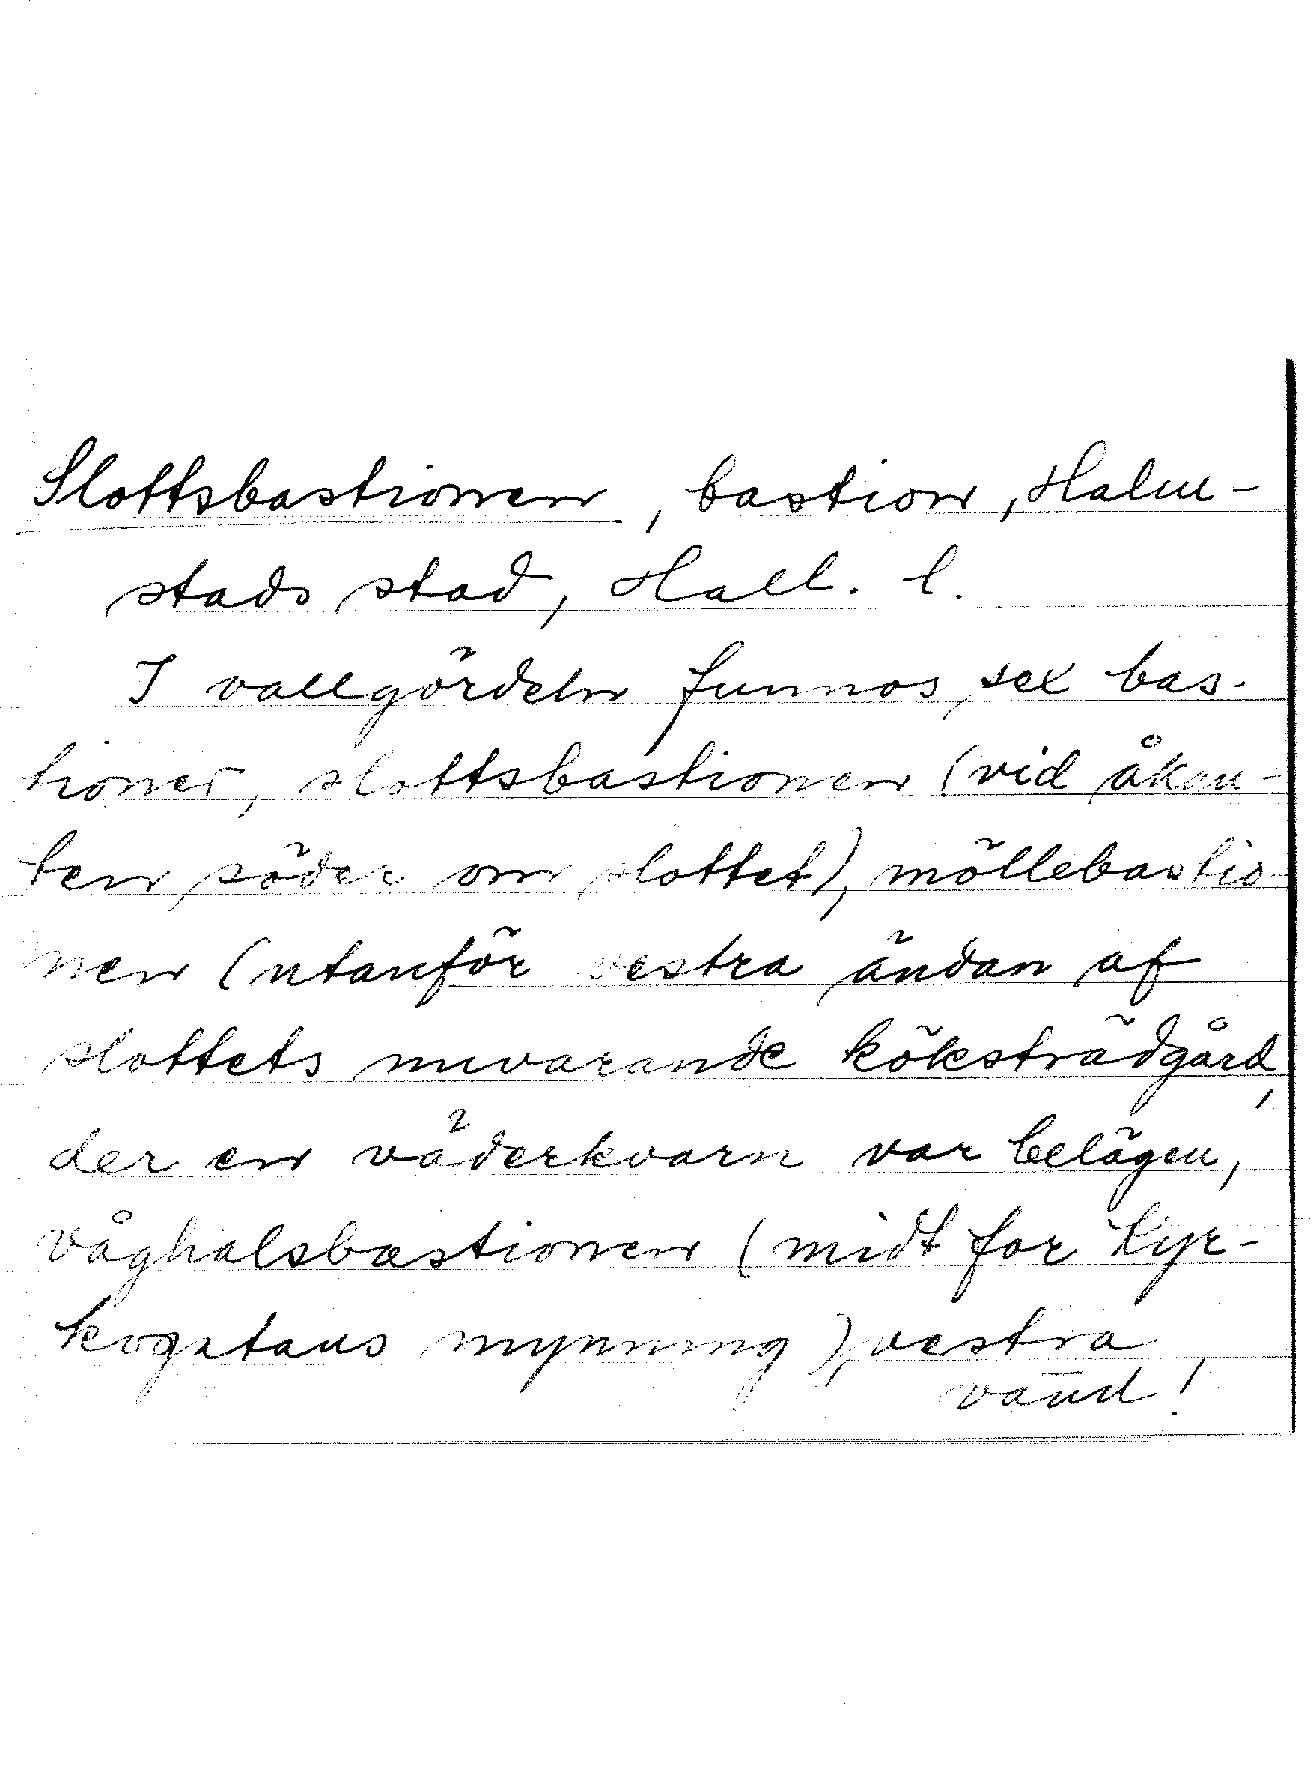 Slottsbastionen, bastion, Halm-
stads stad, Hall. l.
I vallgördeln funnos sex bas-
tioner, slottsbastionen (vid åkan-
ten söder om slottet), möllebastio-
nen (utanför vestra ändan af
slottets nuvarande köksträdgård,
der en väderkvarn var belägen,
våghalsbastionen (midt för Kyr-
kogatans mynning), vestra
vänd!